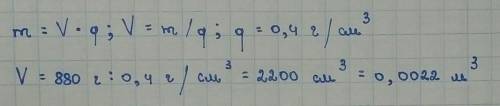 m = V · q ; V = m / q ; q = 0,4 г / см³
V = 880 г : 0,4 г / см³ = 2200 см³ = 0,0022 м³